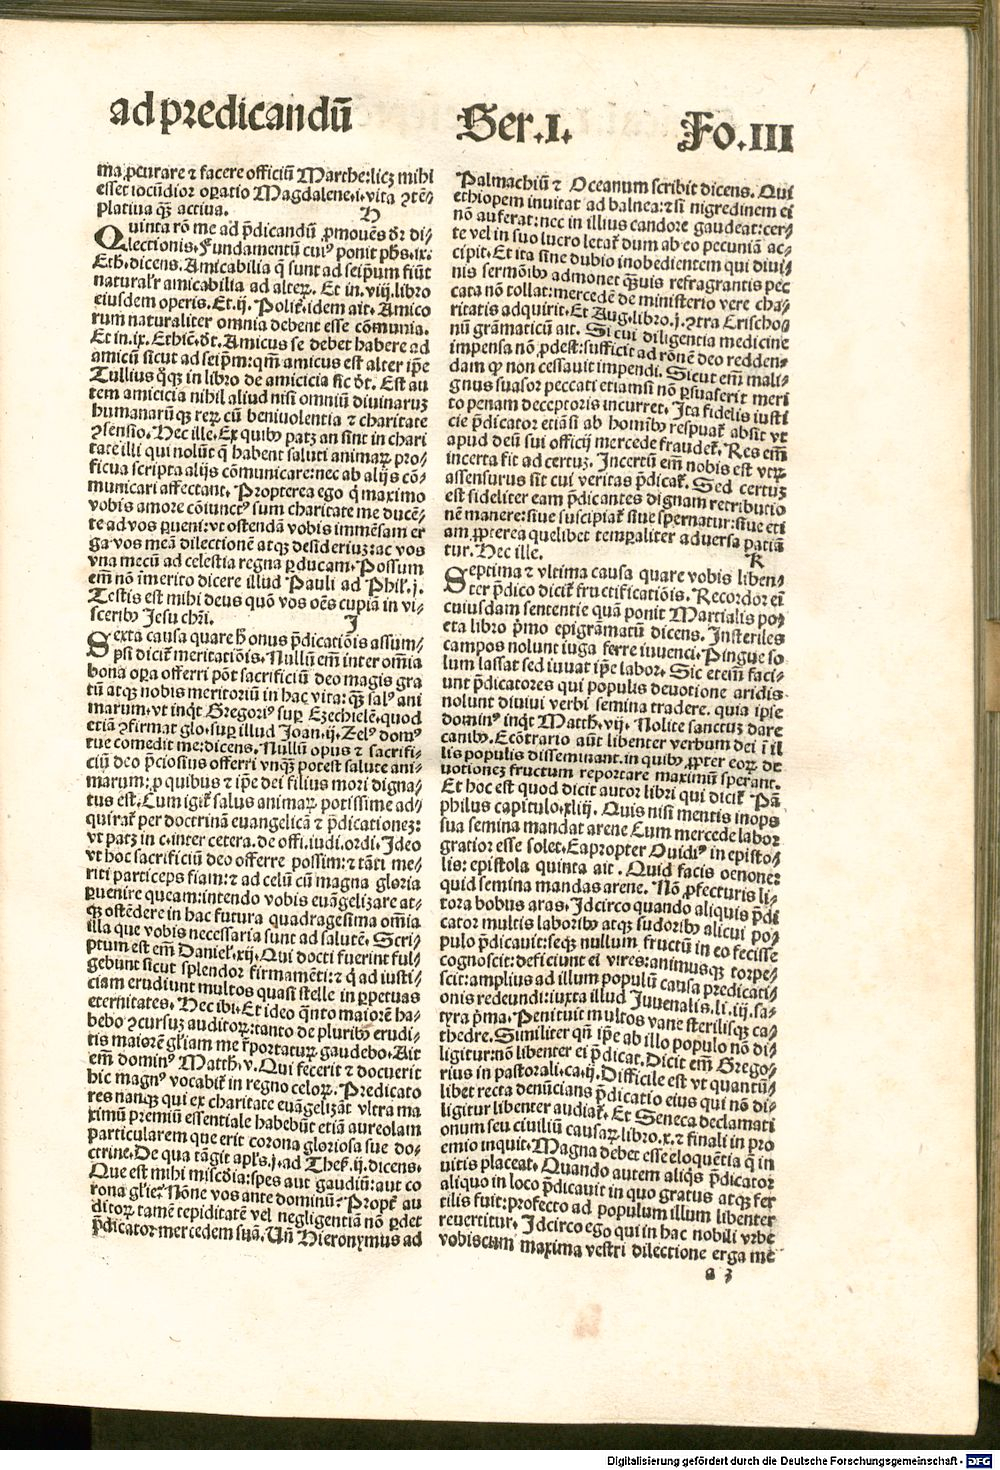 ad predicandū Ser.I. Fo.III
ma ꝓcurare ⁊ facere officiū Marthe:licꝫ mihi
esset iocūdior oꝑatio Magdalene.i.vita ꝯtē-
platiua qꝫ̄ actiua. H
Quinta rō me ad p̄dicandū ꝓmouēs dr̄ di/
lectionis. Fundamentū cuiꝰ ponit ph̄s.ix.
Eth.dicens. Amicabilia q̄ sunt ad seip̄um fiūt
naturalr̄ amicabilia ad alteꝝ. Et in.viij.libro
eiusdem operis. Et.ij. Polit̄.idem ait. Amico
rum naturaliter omnia debent esse cōmunia.
Et in.ix. Ethic̄.dt̄. Amicus se debet habere ad
amicū sicut ad seip̄m:qm̄ amicus est alter ip̄e
Tullius q̊qꝫ in libro de amicicia sic dt̄. Est au
tem amicicia nihil aliud nisi omniū diuinaruꝫ
humanarūqꝫ reꝝ cū beniuolentia ⁊ charitate
ꝯsensio. Hec ille. Ex quibꝰ patꝫ an sint in chari
tate illi qui nolūt q̄ habent saluti animaꝝ pro/
ficua scripta alijs cōmunicare:nec ab alijs cō/
municari affectant. Propterea ego q̇ maximo
vobis amore cōiunctꝰ sum charitate me ducē/
te ad vos ꝑueni:vt ostendā vobis immēsam er
ga vos meā dilectionē atqꝫ desideriuꝫ:ac vos
vna mecū ad celestia regna ꝑducam. Possum
em̄ nō īmerito dicere illud Pauli ad Phil̄.j.
Testis est mihi deus quō vos oēs cupiā in vi/
sceribꝰ Jesu chr̄i. J
Sexta causa quare h̄ onus p̄dicatiōis assum/
psi dicit̄ meritatiōis. Nullū em̄ inter om̄ia
bona oꝑa offerri pōt sacrificiū deo magis gra
tū atqꝫ nobis meritoriū in hac vita:qꝫ̄ salꝰ ani
marum.vt inq̇t Gregoriꝰ suꝑ Ezechielē.quod
etiā ꝯfirmat glo.suꝑ illud Joan.ij. Zelꝰ domꝰ
tue comedit me:dicens. Nullū opus ⁊ sacrifi/
ciū deo p̄ciosius offerri vnqꝫ̄ potest salute ani/
marum:ꝓ quibus ⁊ ip̄e dei filius mori digna/
tus est. Cum igit̄ salus animaꝝ potissime ad/
quirat̄ per doctrinā euangelicā ⁊ p̄dicationeꝫ:
vt patꝫ in c.inter cetera.de offi.iudi.ordi. Ideo
vt hoc sacrificiū deo offerre possim:⁊ tāti me/
riti particeps fiam:⁊ ad celū cū magna gloria
ꝑuenire queam:intendo vobis euāgelizare at/
qꝫ ostēdere in hac futura quadragesima om̄ia
illa que vobis necessaria sunt ad salutē. Scri/
ptum est em̄ Daniel̄.xij. Qui docti fuerint ful/
gebunt sicut splendor firmamēti:⁊ q̇ ad iusti/
ciam erudiunt multos quasi stelle in ꝑpetuas
eternitates. Hec ibi. Et ideo q̊nto maiorē ha/
bebo ꝯcursuꝫ auditoꝝ:tanto de pluribꝰ erudi/
tis maiorē gl̄iam me r̄portaturꝝ gaudebo. Ait
em̄ dominꝰ Matth.v. Qui fecerit ⁊ docuerit
hic magnꝰ vocabit̄ in regno celoꝝ. Predicato
res nanqꝫ qui ex charitate euāgelizāt vltra ma
ximū premiū essentiale habebūt etiā aureolam
particularem que erit corona gloriosa sue do/
ctrine. De qua tāgit apl̄s.j.ad Thes̄.ij.dicens.
Que est mihi miscd̄ia:spes aut gaudiū:aut co
rona gl̄ie? Nōne vos ante dominū? Propt̄ au
ditoꝝ tamē tepiditatē vel negligentiā nō ꝑdet
p̄dicator mercedem suā. Un̄ Hieronymus ad
Palmachiū ⁊ Oceanum scribit dicens. Qui
ethiopem inuitat ad balnea:⁊si nigredinem ei
nō auferat:nec in illius candore gaudeat:cer/
te vel in suo lucro letat̄ dum ab eo pecuniā ac/
cipit. Et ita sine dubio inobedientem qui diui/
nis sermōibꝰ admonet qꝫ̄uis refragrantis pec
cata nō tollat:mercedē de ministerio vere cha/
ritatis adquirit. Et Aug.libro.j.ꝯtra Crischo/
nū grāmaticū ait. Si cui diligentia medicine
impensa nō ꝓdest:sufficit ad rōnē deo redden/
dam ꝙ non cessauit impendi. Sicut em̄ mali/
gnus suasor peccati etiamsi nō ꝑsuaserit meri
to penam deceptoris incurret. Ita fidelis iusti
cie p̄dicator etiāsi ab homībꝰ respuat̄ absit vt
apud deū sui officij mercede fraudet̄. Res em̄
incerta fit ad certuꝫ. Incertū em̄ nobis est vtꝝ
assensurus sit cui veritas p̄dicat̄. Sed certuꝫ
est fideliter eam p̄dicantes dignam retributio
nē manere:siue suscipiat̄ siue spernatur:siue eti
am ꝓpterea quelibet temꝑaliter aduersa patiā
tur. Hec ille. K
Septima ⁊ vltima causa quare vobis liben/
ter p̄dico dicit̄ fructificatiōis. Recordor em̄
cuiusdam sententie quā ponit Martialis po/
eta libro p̄mo epigrāmatū dicens. Insteriles
campos nolunt iuga ferre iuuenci. Pingue so
lum lassat sed iuuat ip̄e labor. Sic etem̄ faci/
unt p̄dicatores qui populis deuotione aridis
nolunt diuini verbi semina tradere. quia ipse
dominꝰ inq̇t Matth.vij. Nolite sanctuꝫ dare
canibꝰ. Ecōtrario aūt libenter verbum dei ī il
lis populis disseminant.in quibꝰ ꝓpter eoꝝ de
uotioneꝫ fructum reportare maximū sperant.
Et hoc est quod dicit autor libri qui dicit̄ Pā
philus capitulo.xliij. Quis nisi mentis inops
sua semina mandat arene Cum mercede labor
gratior esse solet. Eapropter Ouidiꝰ in episto/
lis: epistola quinta ait. Quid facis oenone:
quid semina mandas arene. Nō ꝓfecturis li/
tora bobus aras. Idcirco quando aliquis p̄di
cator multis laboribꝰ atqꝫ sudoribꝰ alicui po/
pulo p̄dicauit:seqꝫ nullum fructū in eo fecisse
cognoscit:deficiunt ei vires:animusqꝫ torpe/
scit:amplius ad illum populū causa predicati/
onis redeundi:iuxta illud Juuenalis.li.iij.sa/
tyra p̄ma. Penituit multos vane sterilisqꝫ ca/
thedre. Similiter qn̄ ip̄e ab illo populo nō di/
ligitur:nō libenter ei p̄dicat. Dicit em̄ Grego/
rius in pastorali.ca.ij. Difficile est vt quantū/
libet recta denūcians p̄dicatio eius qui nō di/
ligitur libenter audiat̄. Et Seneca declamati
onum seu ciuiliū causaꝝ libro.x.⁊ finali in pro
emio inquit. Magna debet esse eloquētia q̄ in
uitis placeat. Quando autem aliq̇s p̄dicator
aliquo in loco p̄dicauit in quo gratus atqꝫ fer
tilis fuit:profecto ad populum illum libenter
reuertitur. Idcirco ego qui in hac nobili vrbe
vobiscum maxima vestri dilectione erga me
a 3
Digitalisierung gefördert durch die Deutsche Forschungsgemeinschaft - DFG